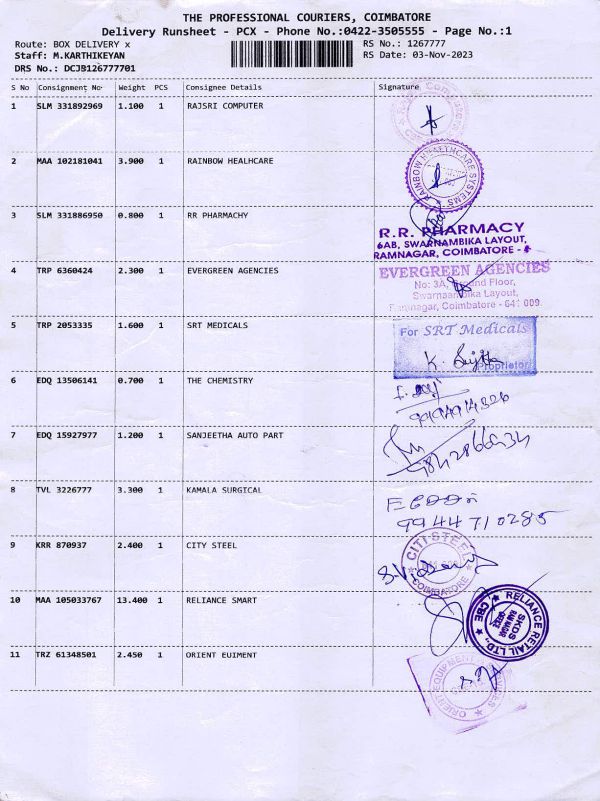 THE PROFESSIONAL COURIERS, COIMBATORE
Delivery Runsheet - PCX - Phone No.:0422-3505555 - Page No.:1
Route: BOX DELIVERY x
RS No.: 1267777
Staff: M.KARTHIKEYAN
RS Date: 03-Nov-2023
DRS No.: DCJB126777701
S No Consignment No Weight PCS Consignee Details Signature
1 SLM 331892969 1.100 1 RAJSRI COMPUTER
2 MAA 102181041 3.900 1 RAINBOW HEALHCARE
RAINBOW HEALTHCARE SYSTEMS
3 SLM 331886950 0.800 1 RR PHARMACHY
R.R. PHARMACY
6AB, SWARNAMBIKA LAYOUT,
RAMNAGAR, COIMBATORE -
4 TRP 6360424 2.300 1 EVERGREEN AGENCIES
EVERGREEN AGENCIES
No: 3A, Floor,
Swarnaambika Layout,
Ramnagar, Coimbatore - 641 009.
5 TRP 2053335 1.600 1 SRT MEDICALS
For SRT Medicals
K. Sujitha
Proprietor
6 EDQ 13506141 0.700 1 THE CHEMISTRY
7 EDQ 15927977 1.200 1 SANJEETHA AUTO PART
8 TVL 3226777 3.300 1 KAMALA SURGICAL
9944710285
9 KRR 870937 2.400 1 CITY STEEL
CITI STEEL
COIMBATORE
10 MAA 105033767 13.400 1 RELIANCE SMART
RELIANCE RETAIL LTD., CBE
SKDS
RAM NAGAR
11 TRZ 61348501 2.450 1 ORIENT EUIMENT
ORIENT EQUIPMENT